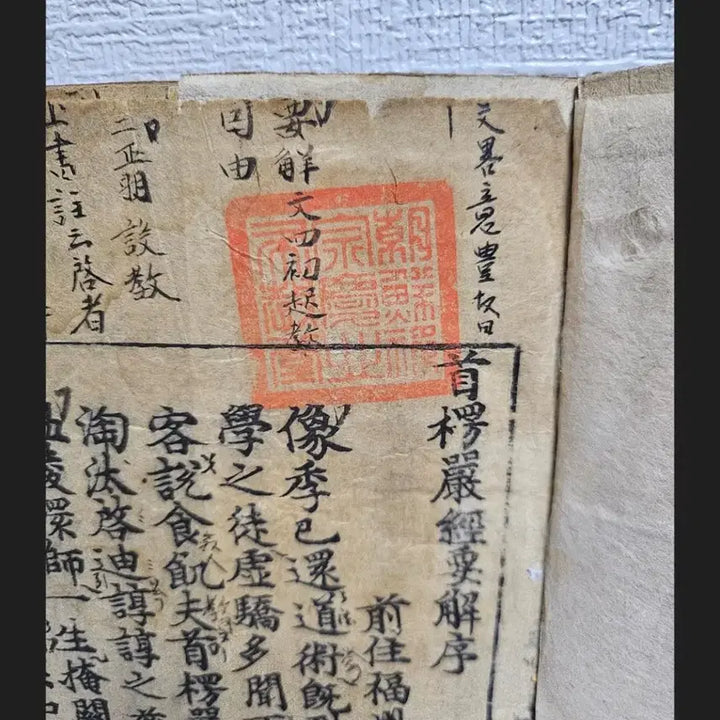 文畧意豊故曰
要解文四初起教
因由
二正明設教
書註云啓者
首楞嚴經要解序
前住福
像季已還道術既
學之徒虛驕多聞
客說食飢夫首楞
淘汰啓迪諄諄之
環師一生掩關